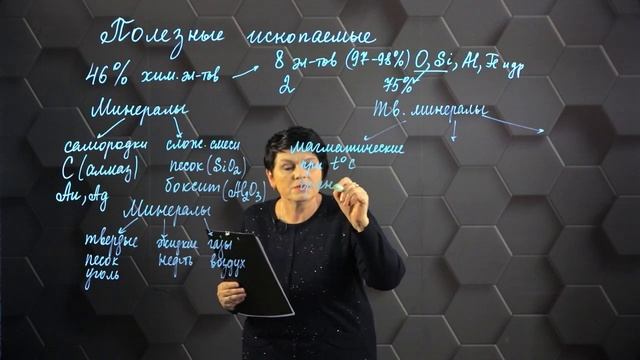 Полезные ископаемые
46% хим. эл-тов → 8 эл-тов (97-98%) O, Si, Al, Fe и др
2 75%
Минералы
Тв. минералы
самородки
C (алмаз)
Au, Ag
слож. смеси
песок (SiO2)
боксит (Al2O3)
магматические
при t°C
Минералы
твердые
песок
уголь
жидкие
нефть
газы
воздух